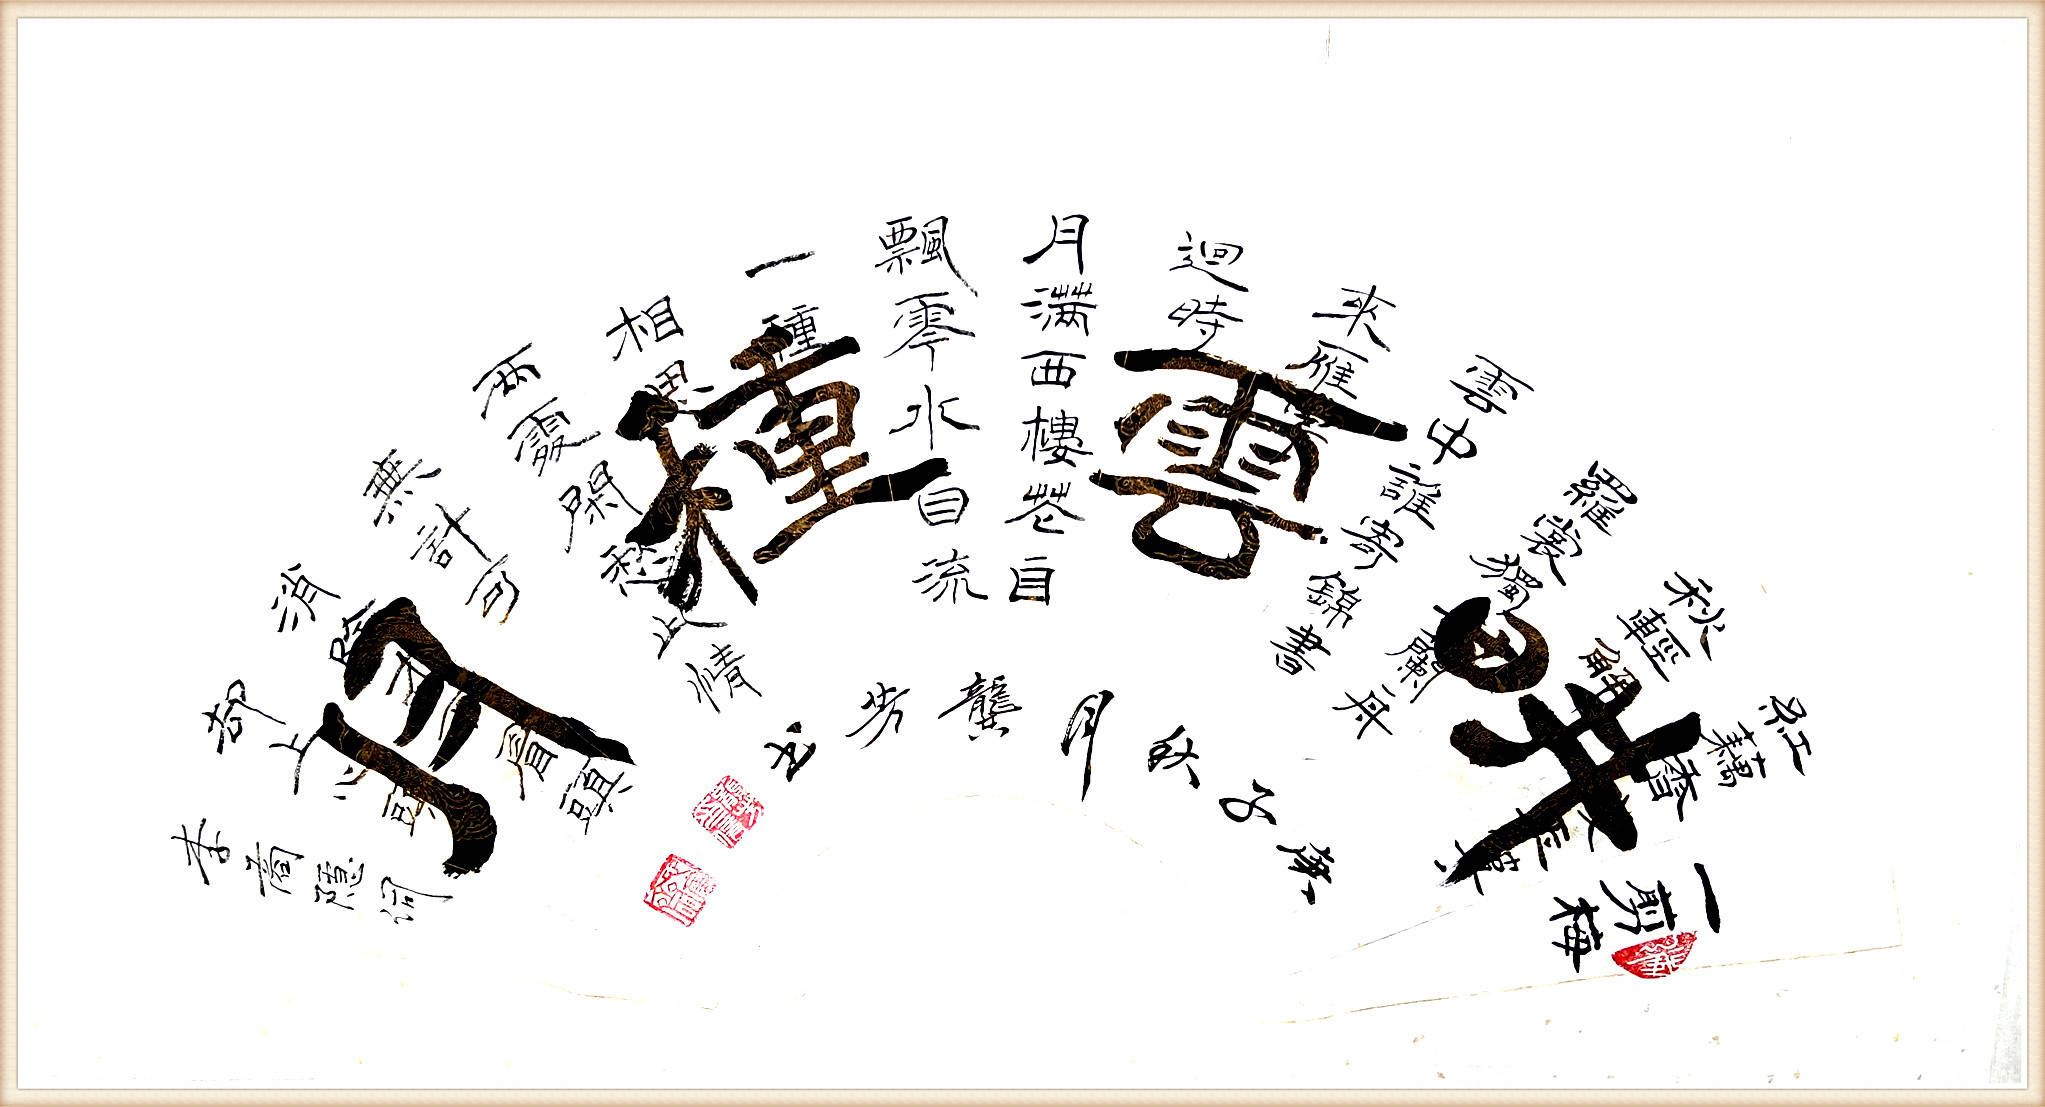 畊雲種月
一剪梅
紅藕香殘玉簟
秋輕解
羅裳獨上蘭舟
雲中誰寄錦書
來雁字
迴時
月滿西樓花自
飄零水自流
一種
相思
兩處閑愁此情
無計可
消除才下眉頭
却上心頭
李商隱詞
庚子秋月龔芳书